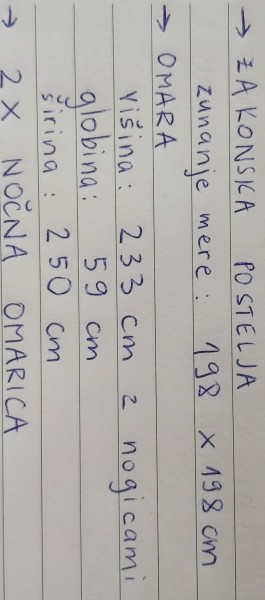 → ZAKONSKA POSTELJA
zunanje mere: 198 x 198 cm
→ OMARA
višina: 233 cm z nogicami
globina: 59 cm
širina: 250 cm
→ 2 X NOČNA OMARICA